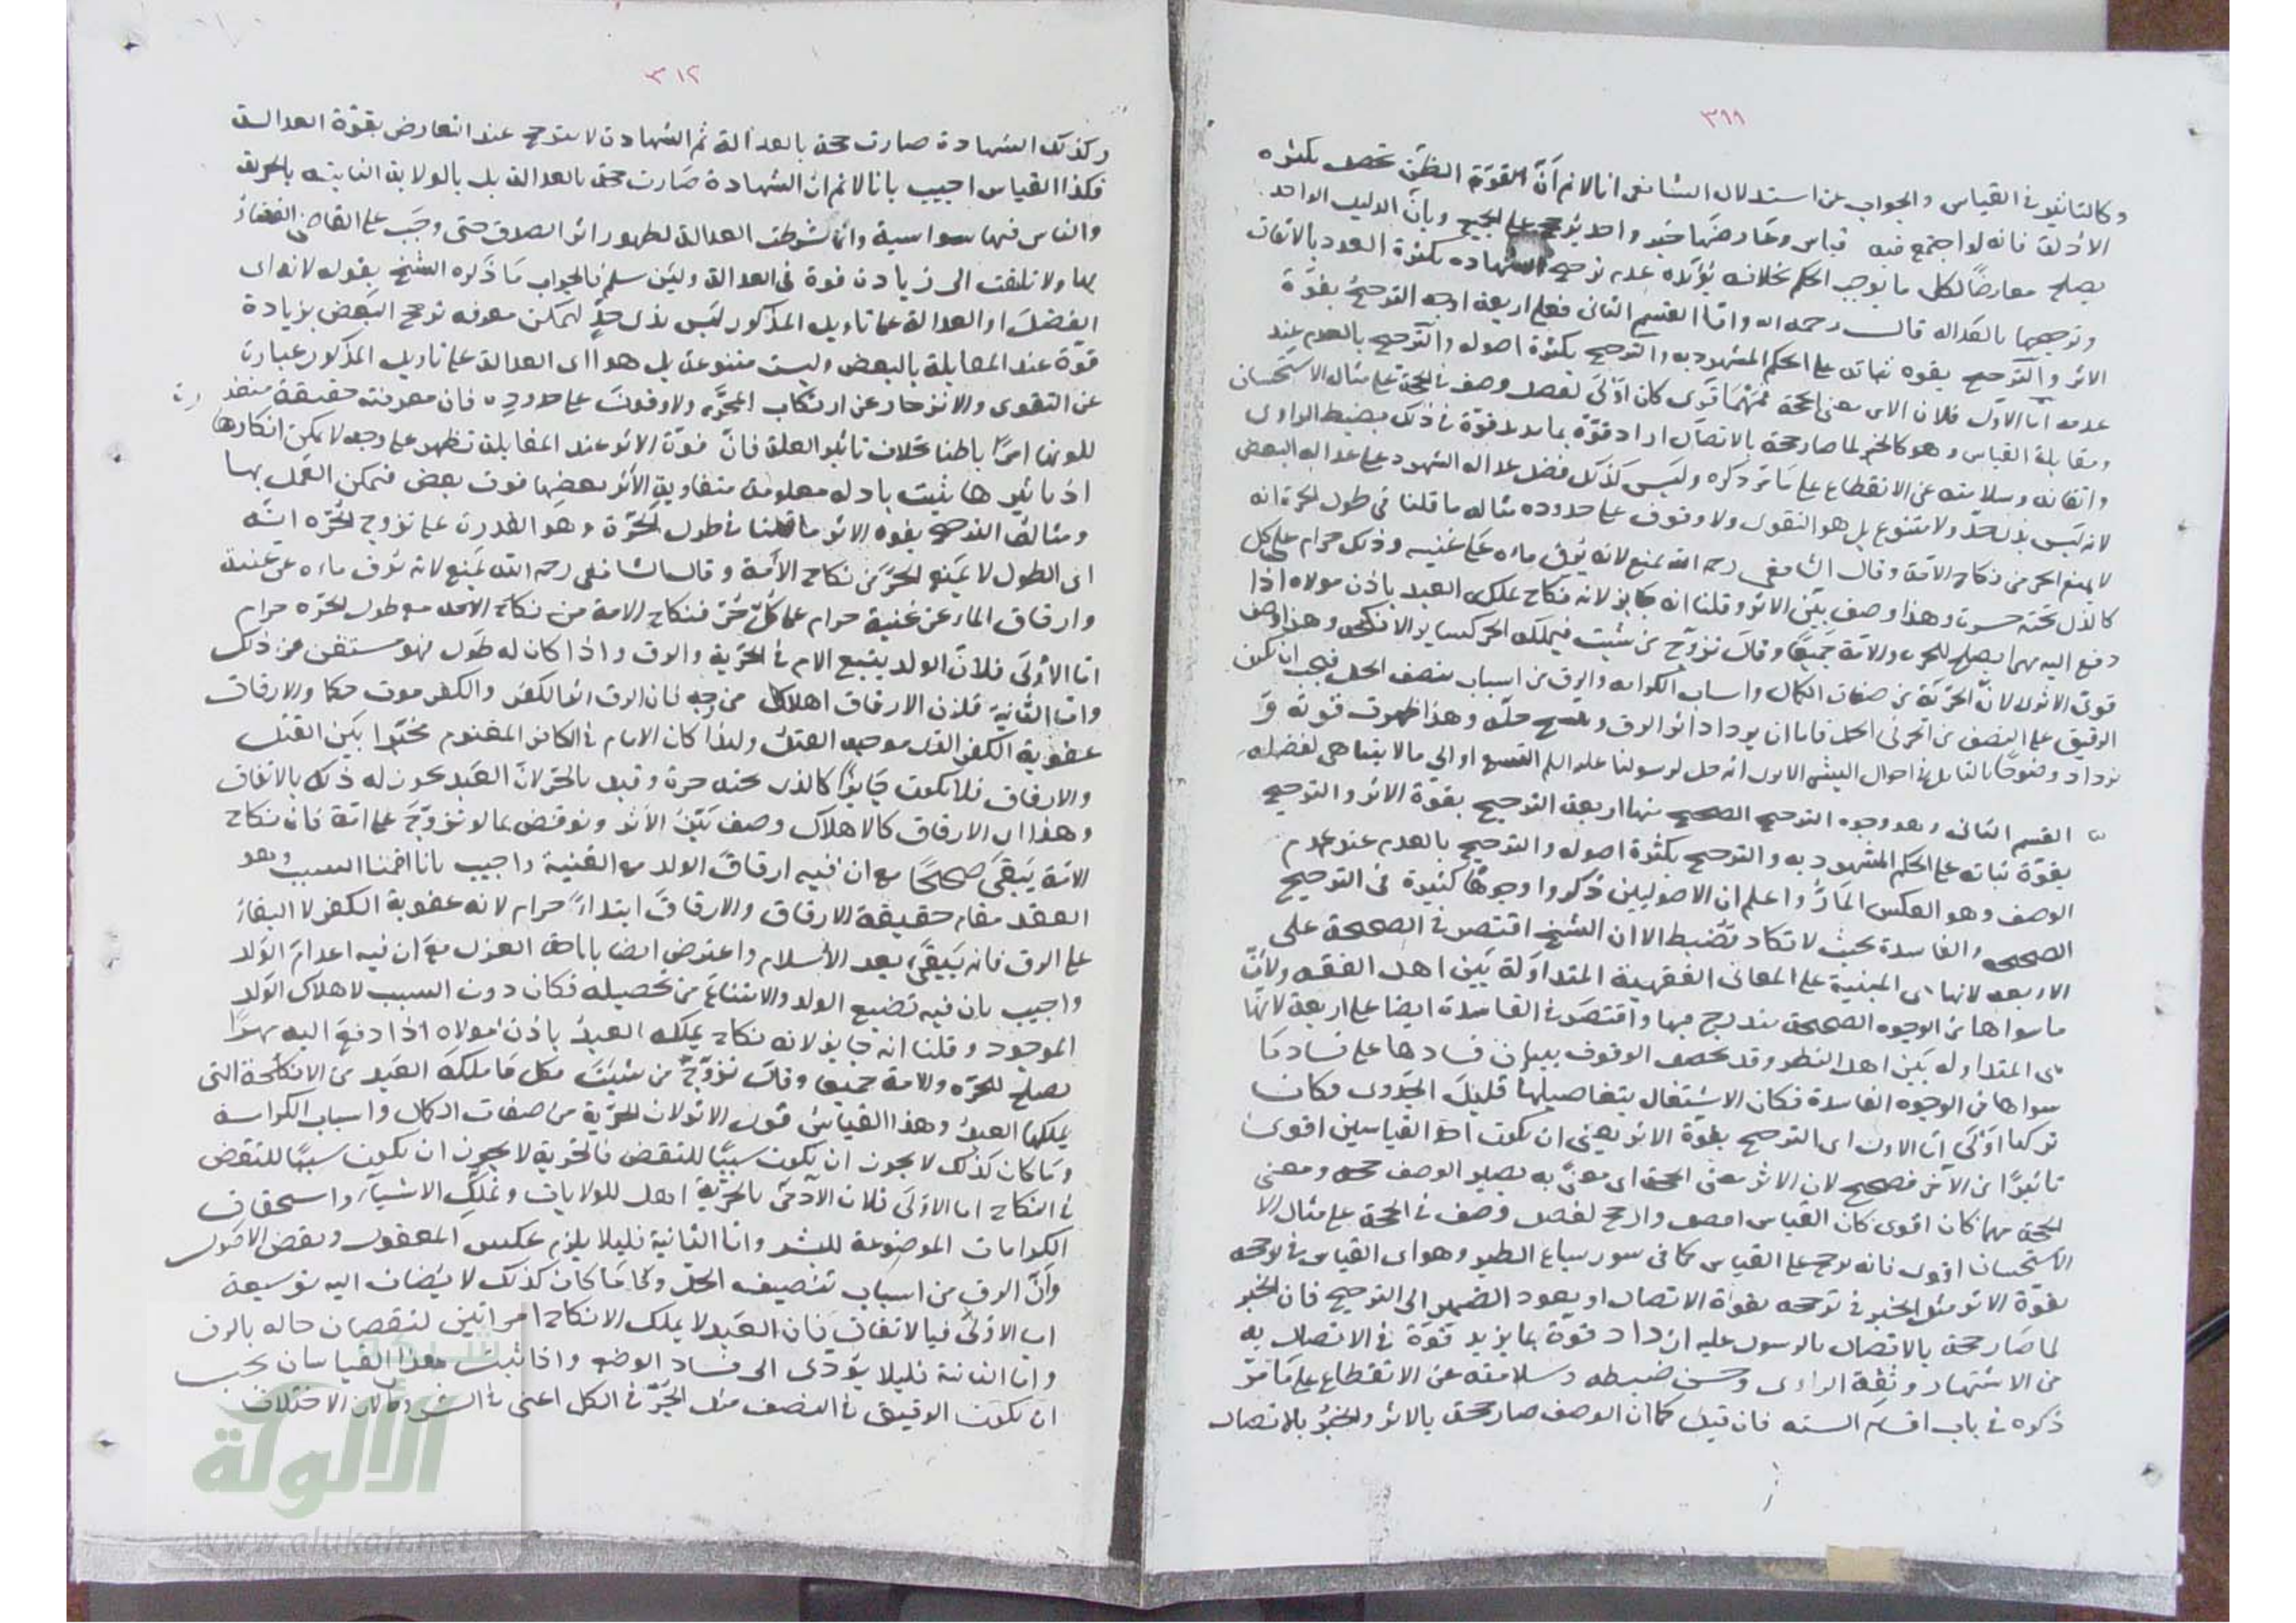 ٣٩٩
وكالتأثير في القياس والجواب عن استدلال الشافعي انا لا نم أنّ القوّة الظن تحصل بكثرة
الأدلة فانه لو اجتمع فيه قياس وعارضها خبر واحد يترجح على الجميع وبأن الدليل الواحد
يصلح معارضًا لكل ما يوجب الحكم بخلافه يؤيّده عدم ترجيح الشهاده بكثرة العدد بالاتفاق
وترجيحها بالعداله قال رحمه الله وامّا القسم الثاني فعلى اربعة اوجه الترجيح بقوّة
الاثر والترجيح بقوه ثباته على الحكم المشهود به والترجيح بكثرة اصوله والترجيح بالعدم عند
عدمه امّا الاوّل فلان الاثر معنى الحجة فمهما قوي كان اوّلى لفضل وصف في الحجة على مثال الاستحسان
ومقابلة القياس وهو كالخبر لما صار حجة بالاتصال ازداد قوّة بما يزيد قوّة في ذلك بضبط الراوي
واتقانه وسلامته عن الانقطاع على ما مر ذكره وليس كذلك فضل عداله الشهود على عداله البعض
لانه ليس بذي حدّ ولا متنوع بل هو التقوى ولا وقوف على حدوده مثاله ما قلنا في طول الحرة انه
لا يمنع الحر من نكاح الامة وقال الشافعي رحمه الله يمنع لانه يرق ماءه على غنيه وذلك حرام على كل
كالذي تحته حرة وهذا وصف بيّن الاثر وقلنا انه جايز لانه نكاح يملكه العبد باذن مولاه اذا
دفع اليه مهرا يصلح للحرة والامة جميعا وقال تزوّج من شئت فيملكه الحر كساير الانكحه وهذا وصف
قوي الاثر لانّ الحريّة من صفات الكمال واسباب الكرامه والرق من اسباب تنصف الحل فيجب ان يكون
الرقيق على النصف من الحر في الحل فاما ان يزداد اثر الرق ويتسع حلّه وهذا ظهرت قوته و
يزداد وضوحًا بالتامل في احوال البشر الا ترى انه حل لرسولنا عليه السلم التسع او الى ما لا يتناهى لفضله
القسم الثاني وهو وجوه الترجيح الصحيح منها اربعة الترجيح بقوّة الاثر والترجيح
بقوّة ثباته على الحكم المشهود به والترجيح بكثرة اصوله والترجيح بالعدم عند عدم
الوصف وهو العكس المارّ واعلم ان الاصوليين ذكروا وجوهًا كثيرة في الترجيح
الصحيحه والفاسدة بحيث لا تكاد تضبط الا ان الشيخ اقتصر في الصحيحة على
الاربعه لانها اي المبنية على المعاني الفقهية المتداولة بين اهل الفقه ولأنّ
ما سواها من الوجوه الصحيحة يندرج فيها واقتصر في الفاسدة ايضا على اربعة لانها
هي المتداوله بين اهل النظر وقد يحصل الوقوف ببيان فسادها على فساد ما
سواها من الوجوه الفاسدة فكان الاشتغال بتفاصيلها قليل الجدوى فكان
تركها اوّلى امّا الاول اى الترجيح بقوّة الاثر يعني ان يكون احد القياسين اقوى
تاثيرًا من الآخر فصحيح لان الاثر معنى الحجة اى معنىً به يصير الوصف حجه ومعنى
الحجة مهما كان اقوى كان القياس اصح وارجح لفضل وصف في الحجة على مثال الا
الاستحسان اقوى فانه يرجح على القياس كما في سور سباع الطير وهو اى القياس في ترجحه
بقوّة الاثر مثل الخبر في ترجحه بقوّة الاتصال او يعود الضمير الى الترجيح فان الخبر
لما صار حجة بالاتصال بالرسول عليه ازداد قوّة بما يزيد قوّة في الاتصال به
من الاشتهار وثقة الراوي وحسن ضبطه وسلامته عن الانقطاع على ما مرّ
ذكره في باب اقسام السنه فان قيل كما ان الوصف صار حجة بالاثر والخبر بالاتصال
٣١٢
وكذلك الشهادة صارت حجة بالعدالة ثم الشهادة لا تترجح عند التعارض بقوّة العدالة
فكذا القياس اجيب بانا لا نم ان الشهادة صارت حجة بالعدالة بل بالولاية الثابتة بالحرية
والناس فيها سواسية وانما شرطت العدالة لظهور اثر الصدق حتى وجب على القاضي القضاء
بها ولا تلتفت الى زيادة قوة في العدالة ولئن سلم فالجواب ما ذكره الشيخ بقوله لانه اى
الفضل او العدالة على تاويل المذكور ليس بذي حدٍّ ليمكن معرفه ترجح البعض بزيادة
قوّة عند المقابلة بالبعض وليست متنوعة بل هو اى العدالة على تاويل المذكور عبارة
عن التقوى والانزجار عن ارتكاب المحرّم ولا وقوف على حدوده فان معرفته حقيقة متعذ رة
لكونها امرًا باطنا بخلاف تاثير العلة فانّ قوّة الاثر عند المقابلة تظهر على وجه لا يمكن انكارها
اذ تاثيرها يثبت بادله معلومة متفاوتة الأثر بعضها فوق بعض فيمكن العمل بها
ومثال الترجيح بقوه الاثر ما قلنا في طول الحرّة وهو القدرة على تزوج الحرّه انه
اى الطول لا يمنع الحرّ عن نكاح الأمة وقال الشافعي رحمه الله يمنع لانه يرق ماءه عن غنية
وارقاق الماء عن غنية حرام على كلّ حُرّ فنكاح الامة من نكاح الامه مع طول الحرّه حرام
امّا الأولى فلانّ الولد يتبع الام في الحرّية والرق واذا كان له طَول فهو مستغن عن ذلك
وامّا الثانية فلان الارقاق اهلاك من وجه فان الرق اثر الكفر والكفر موت حكما والارقاق
عقوبة الكفر الذى موجبه القتل ولهذا كان الامام في الكافر المغنوم مخيّرا بين القتل
والارقاق فلا يكون جايزًا كالذى تحته حرة وقيد بالحرّ لانّ العبد يجوز له ذلك بالاتفاق
وهذا اى الارقاق كالاهلاك وصف بيّن الأثر ونوقض بما لو تزوّج على امة فان نكاح
الامة يبقى صحيحًا مع ان فيه ارقاق الولد مع الغنية واجيب بانا اقمنا السبب وهو
العقد مقام حقيقة الارقاق والارقاق ابتداءً حرام لانه عقوبة الكفر لا البقاء
على الرق فانه يبقى بعد الأسلام واعترض ايضا باباحة العزل مع ان فيه اعدام الولد
واجيب بان فيه تضييع الولد والامتناع من تحصيله فكان دون السبب لاهلاك الولد
الموجود وقلنا انه جايز لانه نكاح يملكه العبد باذن مولاه اذا دفع اليه مهرًا
يصلح للحرّه والامة جميعا وقال تزوّج من شئت فكل ما ملكه العبد من الانكحة التي
يملكها الحر وهذا القياس قوى الاثر لان الحرّية من صفات الكمال واسباب الكرامة
وما كان كذلك لا يجوز ان يكون سببًا للنقص فالحرية لا يجوز ان يكون سببًا للنقض
في النكاح اما الاولى فلان الآدمى بالحرّية اهل للولايات وتملّك الاشياء واستحقاق
الكرامات الموضوعة للبشر وامّا الثانية فليلا يلزم عكس المعقول ونقض الاصول
وأنّ الرق من اسباب تنصيف الحلّ وكل ما كان كذلك لا يضاف اليه توسيعة
اما الأولى فبالاتفاق فان العبد لا يملك الا نكاح امراتين لنقصان حاله بالرق
واما الثانية فليلا يؤدى الى فساد الوضع واذا ثبت هذا القياسان يجب
ان يكون الرقيق في النصف مثل الحرّ في الكل اعنى في
الألوكة
www.alukah.net